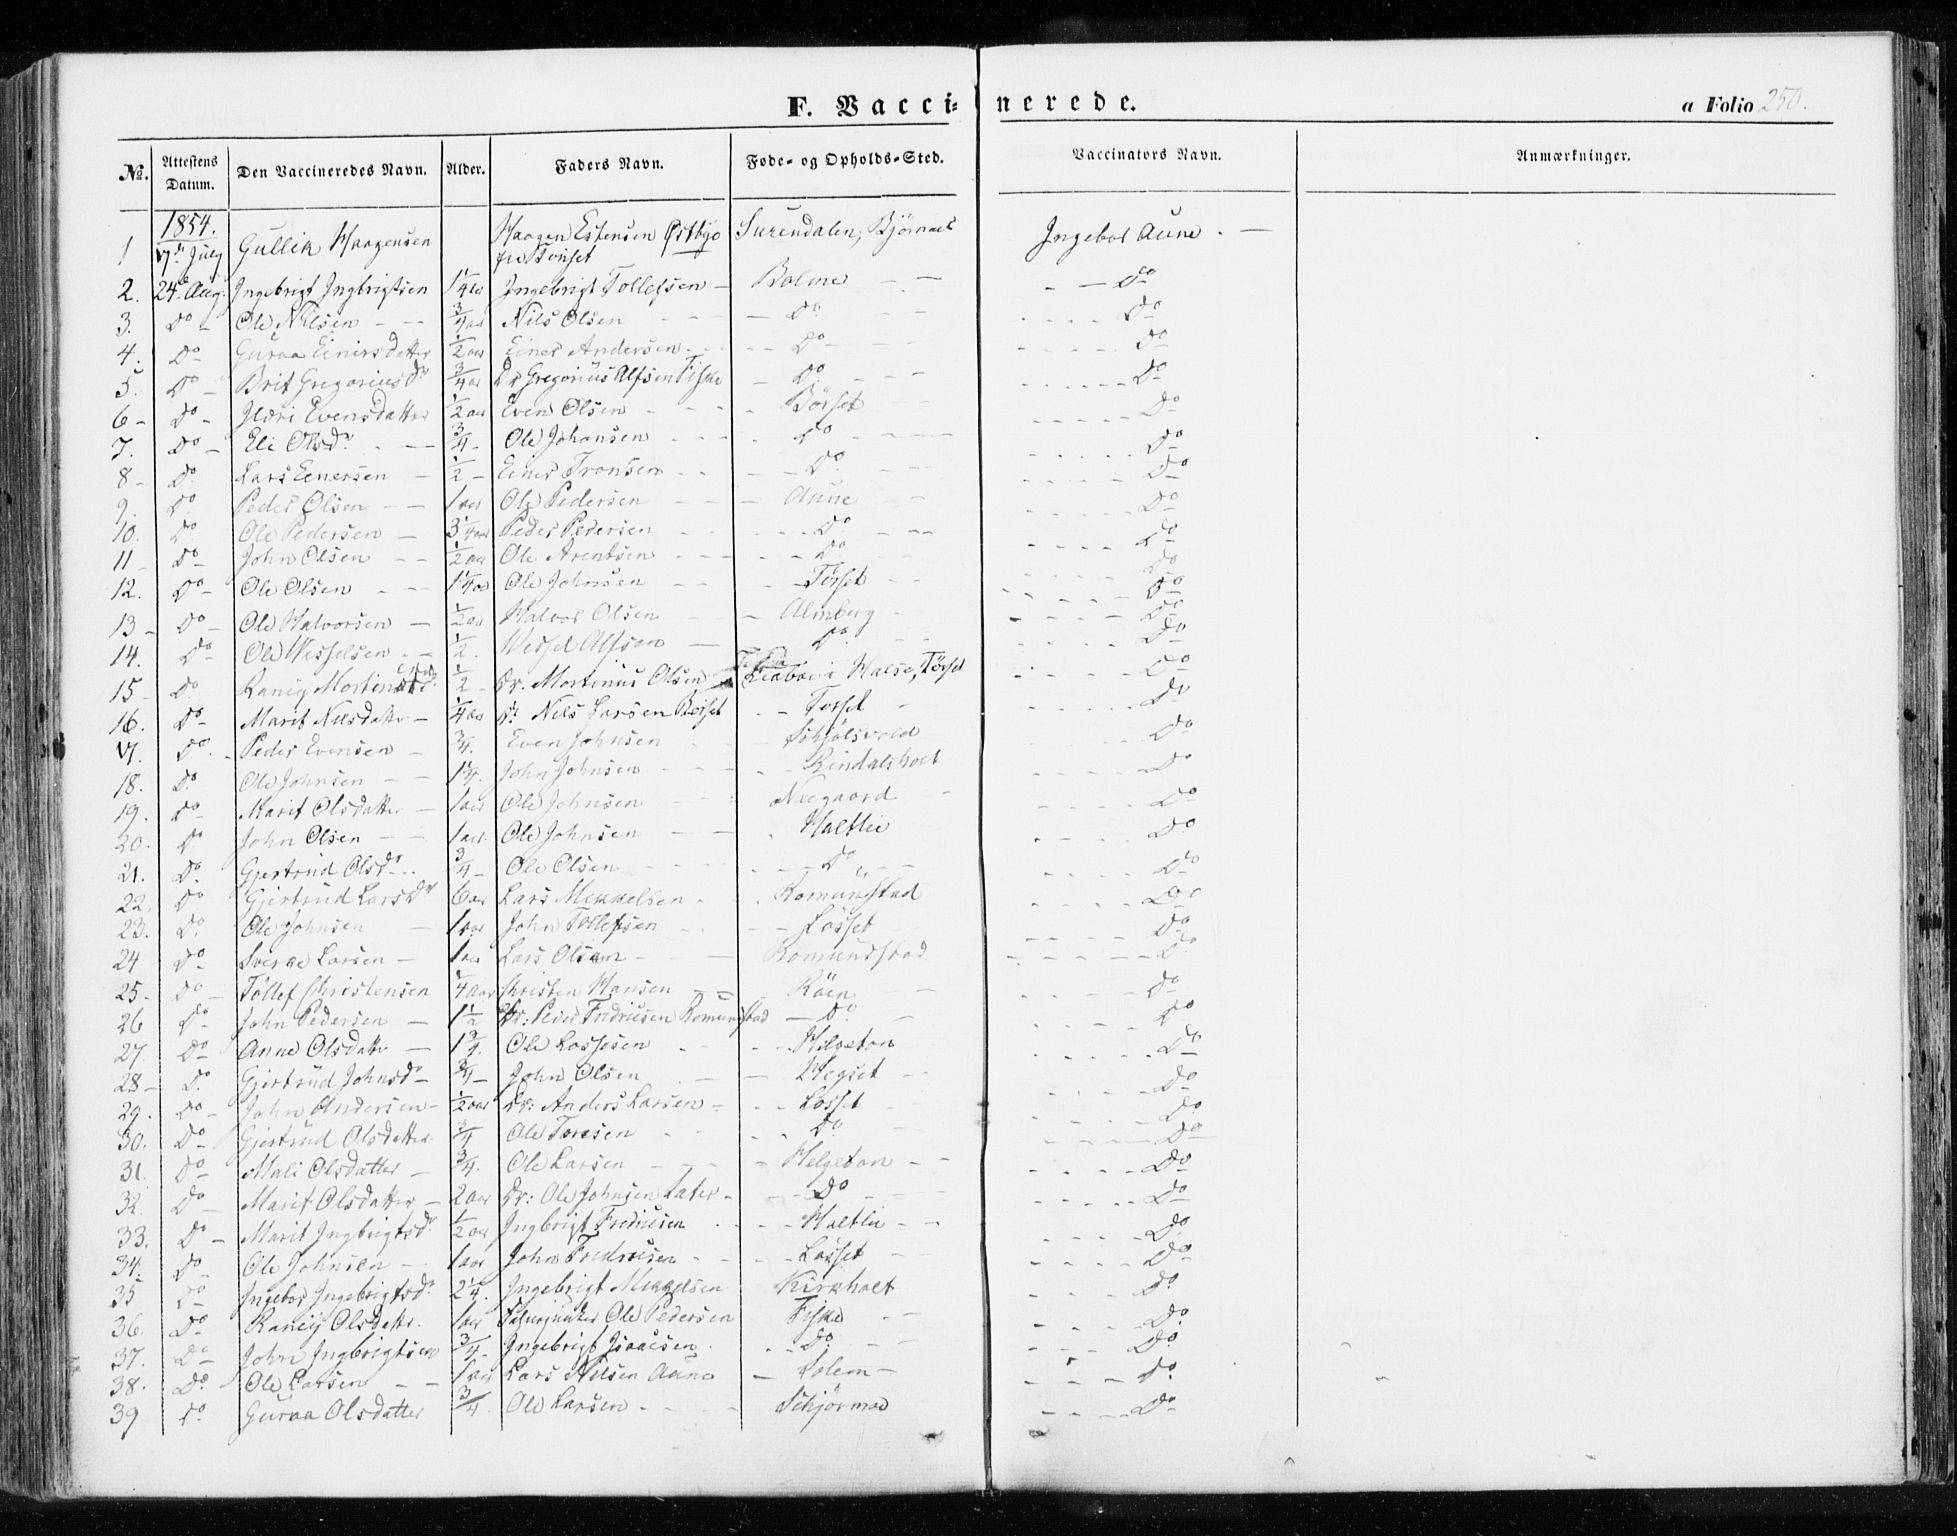 F. Vaccinerede. a Folio 250.
No. Attestens Datum. Den Vaccineredes Navn. Alder. Faders Navn. Føde- og Opholds-Sted. Vaccinators Navn. Anmærkninger.
1854.
1 July Gullik Haagensen Haagen Estensen Østbye Surendalen, Ingebor Aune. —
2. 24de Aug. Ingebrigt Ingbrigtsen 1 1/4 aar Ingebrigt Tollefsen — Bolme — Do
3. Do Ole Nilsen 3/4 aar Nils Olsen Do Do
4. Do Guroa Einersdatter 1/2 aar Einer Andersen Do Do
5. Do Brit Gregoriusdr 3/4 aar Dr Gregorius Alfsen Fiske Do Do
6 Do Ildri Evensdatter 1/2 aar Even Olsen Börset Do
7. Do Eli Olsdr 3/4 Ole Johansen Do Do
8 Do Lars Einersen 1/2 Einer Tronsen Do Do
9. Do Peder Olsen 1 aar Ole Pedersen Aune Do
10. Do Ole Pedersen 3 1/4 aar Peder Pedersen Do Do
11 Do John Olsen 1/2 aar Ole Arentsen Do Do
12. Do Ole Olsen 1 1/4 aar Ole Johnsen Törset Do
13 Do Ole Halvorsen 1/2 aar Halvor Olsen Almberg Do
14. Do Ole Wesselsen 1/2. Wessel Alfson Do Do
15 Do Ranig 1/2 Dr. Mortinus Olsen i Halse, Törset Do
16. Do Marit Nilsdatter 1/4 aar Dr Nils Larsen Börset Torset Do
17. Do Peder Evensen 3/4. Even Johnsen Schjölsvold Do
18. Do Ole Johnsen 1 1/4. John Johnsen Rindalsholt Do
19. Do Marit Olsdatter 1 aar Ole Johnsen Neegaard Do
20. Do John Olsen 1 aar Ole Johnsen Haltlie Do
21. Do Gjertrud Olsdr 3/4 Ole Olsen Do Do
22. Do Gjertrud Larsdr 6 aar Lars Mekkelsen Romundstad Do
23. Do Ole Johnsen 1 aar John Tollefsen Lösset Do
24 Do Sverge Larsen 1 aar Lars Olsen Romundstad Do
25 Do Tollef Christensen 1/4 aar Christen Hansen Röen Do
26 Do John Pedersen 1 1/2 Dr: Peder Fredricksen Romundstad Do Do
27. Do Anne Olsdatter 1 3/4. Ole Lassesen Helgeton Do
28 Do Gjertrud Johnsdr 3/4 John Olsen Hegset Do
29. Do John Andersen 1/2 aar Dr: Anders Larsen Losset Do
30. Do Gjertrud Olsdatter 3/4 Ole Toresen Do Do
31. Do Mali Olsdatter 3/4. Ole Larsen Helgeton Do
32. Do Marit Olsdatter 2 aar Dr: Ole Johnsen Do Do
33. Do Marit Ingbrigtsdr 1/2 aar Ingbrigt Fredricksen Haltlie Do
34. Do Ole Johnsen 1 aar John Fredricksen Lösset Do
35 Do Ingebor Ingebrigtsdr 2 1/4. Ingebrigt Mekkelsen Kirkholt Do
36. Do Raneij Olsdatter 1 aar Ole Pedersen Fiske Do
37. Do John Ingbrigtsen 3/4. Ingebrigt Isaacsen Do Do
38. Do Ole Larsen 1 aar Lars Nilsen Aune Solem Do
39 Do Guroa Olsdatter 3/4 Ole Larsen Schjörmoe Do